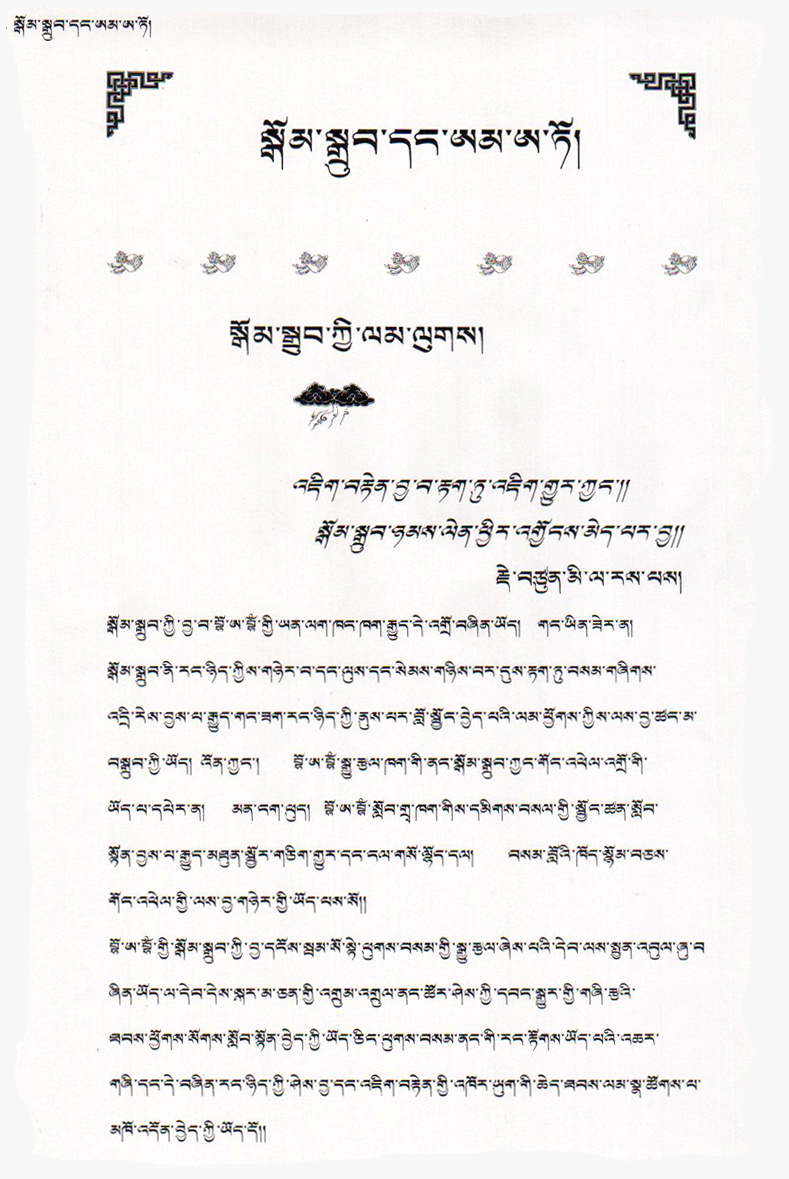 སྒོམ་སྒྲུབ་དང་ཨམ་ཨ་ཏོ།
སྒོམ་སྒྲུབ་དང་ཨམ་ཨ་ཏོ།
སྒོམ་སྒྲུབ་ཀྱི་ལམ་ལུགས།
འཇིག་བརྟེན་བྱ་བ་རྟག་ཏུ་འཇིག་གྱུར་ཀྱང་།།
སྒོམ་སྒྲུབ་ཉམས་ལེན་ཕྱིར་འགྱོངས་མེད་པར་བྱ།།
རྗེ་བཙུན་མི་ལ་རས་པས།
སྒོམ་སྒྲུབ་ཀྱི་བྱ་བ་བློ་ཨ་བྷཱོ་གྱི་ཡན་ལག་ཁང་ཁག་རྒྱུད་དེ་འགྲོ་བཞིན་ཡོད། གང་ཡིན་ཟེར་ན།
སྒོམ་སྒྲུབ་ནི་རང་ཉིད་ཀྱིས་གཉེར་བ་དང་ལུས་དང་སེམས་གཉིས་བར་དུས་རྟག་ཏུ་བསམ་གཞིགས་
འདྲི་རེས་བྱས་པ་རྒྱུད་གང་ཟག་རང་ཉིད་ཀྱི་ནུས་པར་བློ་སྦྱོང་བྱེད་པའི་ལམ་ཕྱོགས་ཀྱིས་ལས་བྱ་ཚད་མ་
བསྒྲུབ་ཀྱི་ཡོད། འོན་ཀྱང་། སྒྱུ་རྩལ་ཁག་གི་ནང་སྒོམ་སྒྲུབ་ཀྱང་གོང་འཕེལ་འགྲོ་གི་
ཡོད་པ་དཔེར་ན། མན་ངག་ཕུད། སློབ་གྲྭ་ཁག་གིས་དམིགས་བསལ་གྱི་སྦྱོང་ཚན་སློབ་
སྟོན་བྱས་པ་རྒྱུད་མཐུན་སྦྱོར་གཅིག་གྱུར་དང་ངལ་གསོ་ལྷོད་དལ། བསམ་བློའི་ཁོད་སྙོམ་བཅས་
གོང་འཕེལ་གྱི་ལས་བྱ་གཉེར་གྱི་ཡོད་པས་སོ།།
གྱི་སྒོམ་སྒྲུབ་ཀྱི་བྱ་དངོས་སྦམ་སོ་སྟེ་ཕུགས་བསམ་གྱི་སྒྱུ་རྩལ་ཞེས་པའི་དེབ་ལས་སྤྱན་འབུལ་ཞུ་བ
ཞིན་ཡོད་ལ་དེབ་དེས་སྐར་མ་ཅན་གྱི་འགུམ་འགུལ་ནང་ཚོར་ཤེས་ཀྱི་དབང་སྒྱུར་གྱི་གཞི་རྩའི་
ཐབས་ཕྱོགས་སོགས་སློབ་སྟོན་བྱེད་ཀྱི་ཡོད་ཅིང་ཕུགས་བསམ་ནང་གི་རང་རྟོགས་ཡོད་པའི་འཆར་
གཞི་དང་དེ་བཞིན་རང་ཉིད་ཀྱི་ཤེས་བྱ་དང་འཇིག་བརྟེན་གྱི་འཁོར་ཡུག་གི་ཆེད་ཐབས་ལམ་སྣ་ཚོགས་པ་
མཁོ་འདོན་བྱེད་ཀྱི་ཡོད་དོ།།